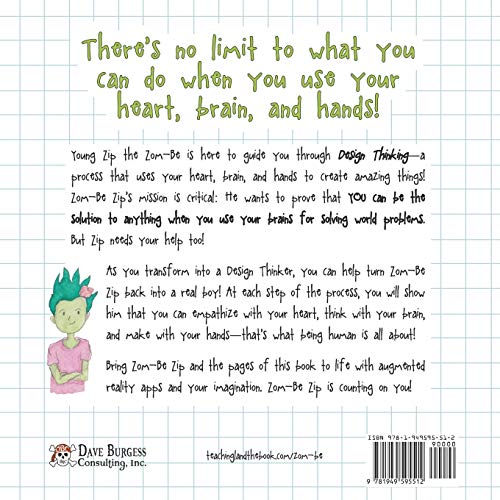 There's no limit to what you
can do when you use your
heart, brain, and hands!
Young Zip the Zom-Be is here to guide you through Design Thinking—a
process that uses your heart, brain, and hands to create amazing things!
Zom-Be Zip's mission is critical: He wants to prove that YOU can be the
solution to anything when you use your brains for solving world problems.
But Zip needs your help too!
As you transform into a Design Thinker, you can help turn Zom-Be
Zip back into a real boy! At each step of the process, you will show
him that you can empathize with your heart, think with your brain,
and make with your hands—that's what being human is all about!
Bring Zom-Be Zip and the pages of this book to life with augmented
reality apps and your imagination. Zom-Be Zip is counting on you!
DAVE BURGESS
Consulting, Inc.
teachinglandthebook.com/zom-be
ISBN 978-1-949595-51-2
90000
9 781949 595512